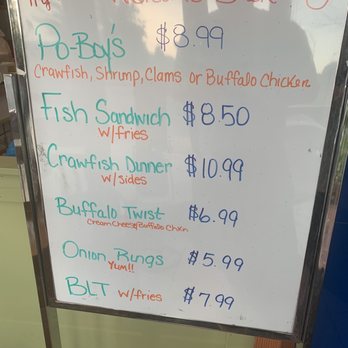 Po-Boy's $8.99
Crawfish, Shrimp, Clams or Buffalo Chicken
Fish Sandwich $8.50
w/fries
Crawfish Dinner $10.99
w/sides
Buffalo Twist $6.99
Cream Cheese & Buffalo Chkn
Onion Rungs $5.99
Yum!!
BLT w/fries $7.99